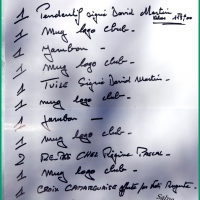 1 Pendentif signé David Martin
1 Mug logo club -
1 Jambon -
1 Mug logo club
1 TUILE Signé David Martin -
1 mug logo club -
1 Jambon -
1 mug logo club -
2 REPAS CHEZ Régine PASCAL -
1 Mug logo club -
1 CROIX CAMARGUAISE offerte par